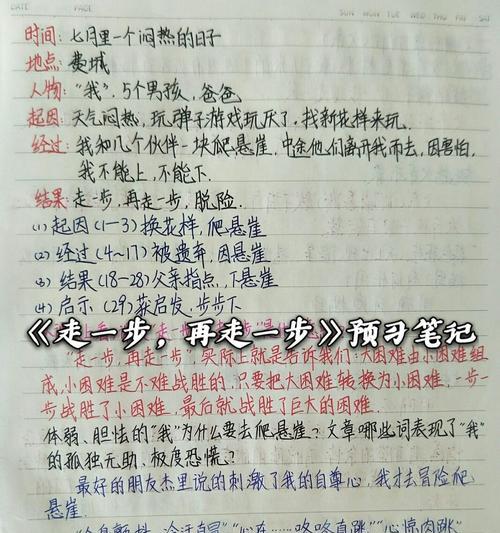 DATE PAGE SUN MON TUE WED THU FRI SAT
时间: 七月里一个闷热的日子
地点: 费城
人物: "我", 5个男孩, 爸爸
起因: 天气闷热, 玩弹子游戏玩厌了, 找新花样来玩.
经过: 我和几个伙伴一块爬悬崖, 中途他们离开我而去, 因害怕,
我不能上, 不能下.
结果: 走一步, 再走一步, 脱险.
(1) 起因(1-3) 换花样, 爬悬崖
(2) 经过(4~17) 被遗弃, 困悬崖
(3) 结果(18-28) 父亲指点, 下悬崖
(4) 启示 (29) 获启发, 步步下
《走一步，再走一步》预习笔记
"走一步, 再走一步", 实际上就是告诉我们: 大困难由小困难组
成, 小困难是不难战胜的, 只要把大困难转换为小困难, 一步一
步战胜了小困难, 最后就战胜了巨大的困难.
体弱、胆怯的"我"为什么要去爬悬崖? 文章哪些词表现了"我"
的孤独无助、极度恐慌?
最好的朋友杰里说的刺激了我的自尊心, 我才去冒险爬
悬崖.